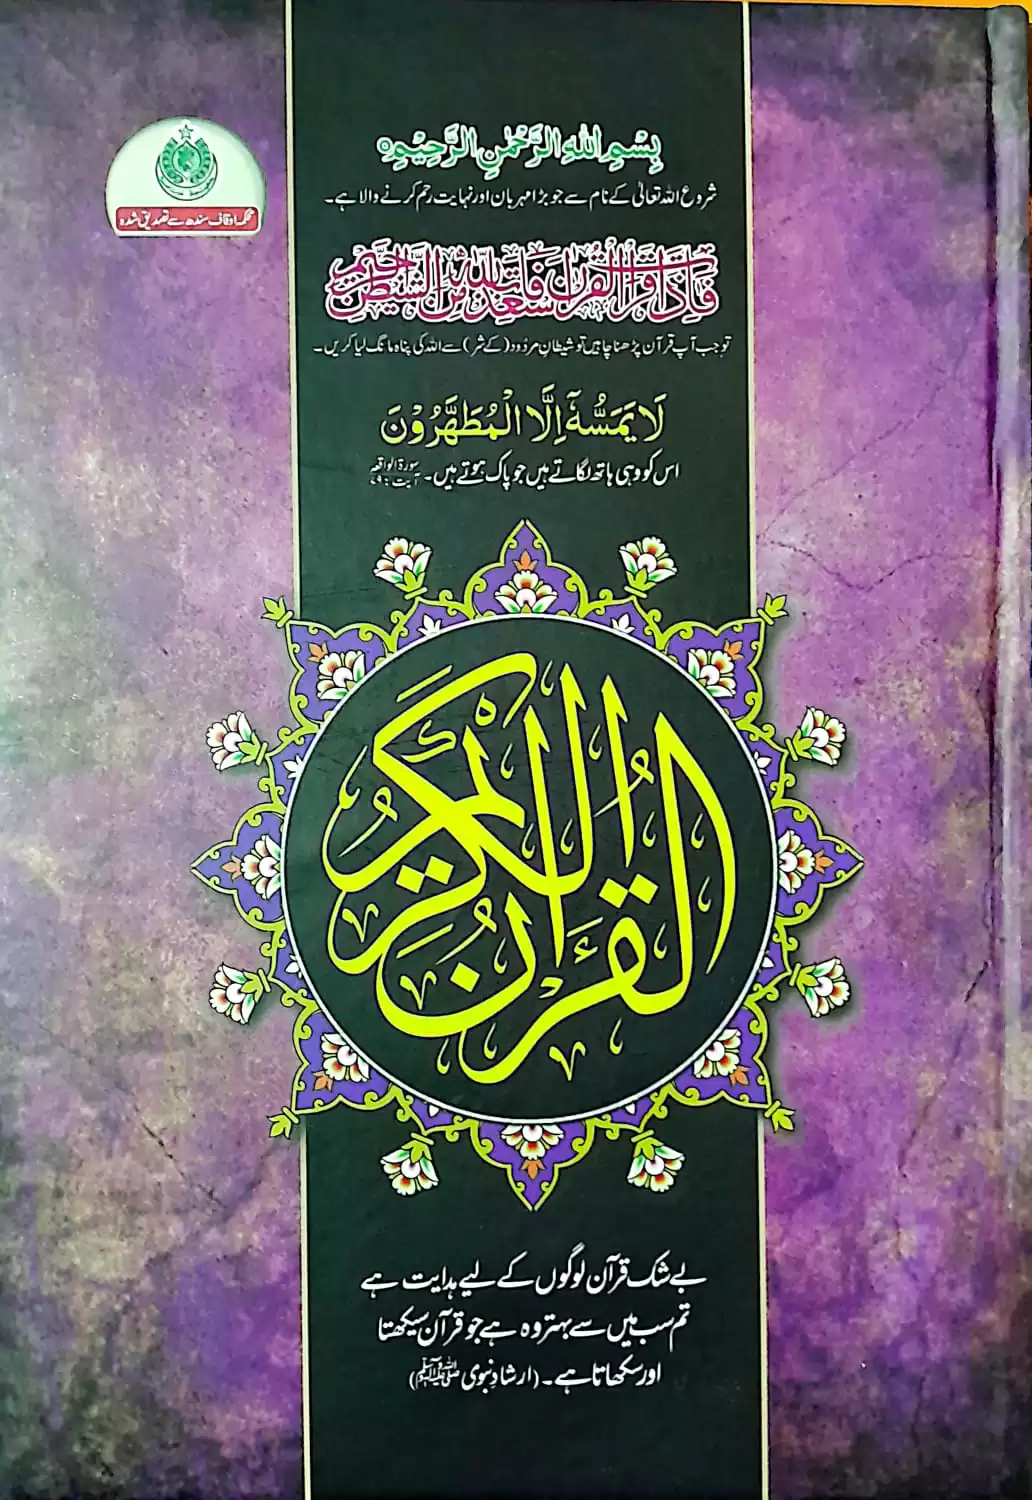 بِسْمِ اللهِ الرَّحْمٰنِ الرَّحِيْمِ○
شروع اللہ تعالیٰ کے نام سے جو بڑا مہربان اور نہایت رحم کرنے والا ہے۔
محکمہ اوقاف سندھ سے تصدیق شدہ
فَاِذَا قَرَاْتَ الْقُرْاٰنَ فَاسْتَعِذْ بِاللّٰهِ مِنَ الشَّيْطٰنِ الرَّجِيْمِ
تو جب آپ قرآن پڑھنا چاہیں تو شیطان مردُود (کے شر) سے اللہ کی پناہ مانگ لیا کریں۔
لَا يَمَسُّهٗۤ اِلَّا الْمُطَهَّرُوْنَ
اس کو وہی ہاتھ لگاتے ہیں جو پاک ہوتے ہیں۔ سورۃ الواقعہ آیت: ۷۹
القرآن الكريم
بے شک قرآن لوگوں کے لیے ہدایت ہے
تم سب میں سے بہتر وہ ہے جو قرآن سیکھتا
اور سکھاتا ہے۔ (ارشادِ نبوی ﷺ)